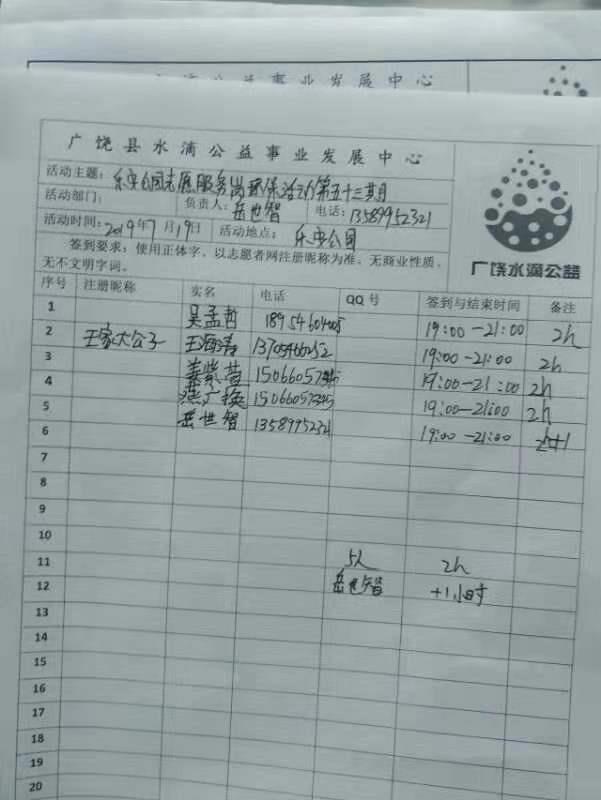 益事业发展中心
广饶县水滴公益事业发展中心
活动主题: 乐安公园志愿服务岗环保活动第五十三期
活动部门: 负责人: 岳世智 电话: 13589952321
活动时间: 2019年7月19日 活动地点: 乐安公园
签到要求:使用正体字,以志愿者网注册昵称为准,无商业性质,
无不文明字词。
广饶水滴公益
序号 注册昵称 实名 电话 QQ号 签到与结束时间 备注
1 吴孟哲 19:00-21:00 2h
2 王家大公子 王海涛 19:00-21:00 2h
3 姜紫萱 19:00-21:00 2h
4 燕广换 15066057345 19:00-21:00 2h
5 岳世智 1358995232 19:00-21:00
6
7
8
9
10
11 5人 2h
12 岳世智 +1小时
13
14
15
16
17
18
19
20